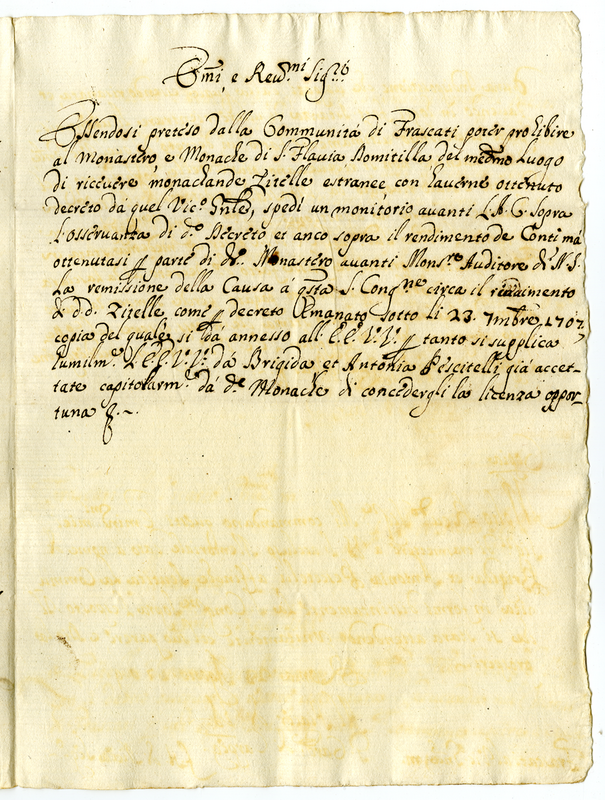 Em̃i, e Reu.mi Sig.ri
Essendosi preteso dalla Communitá di Frascati poter prohibire
al Monastero, e Monache di S. Flavia Domitilla del med.mo Luogo
di riceuere monachande Zitelle estranee con hauerne ottenuto
decreto dá quel Vic.o Gñle, spedi un monitorio auanti L'A.C. Sopra
l'osseruanza di d.o Decreto et anco sopra il rendimento de Conti má
ottenutasi p parte di d.o Monastero auanti Mons.re Auditore di N.S.
la remissione della Causa á q̃sta S. Cong.ne circa il riceuimento
di d.d. Zitelle, come p decreto Emanato sotto li 23. 7mbre 1707,
copia del quale si dá annesso all' E.E. V.V. p tanto si supplica
humilm.e L'E.E. V.V. dá Brigida, et Antonia Pescitelli giá accet-
tate capitolarm.e dá d.e Monache di concedergli la licenza oppor-
tuna &.~